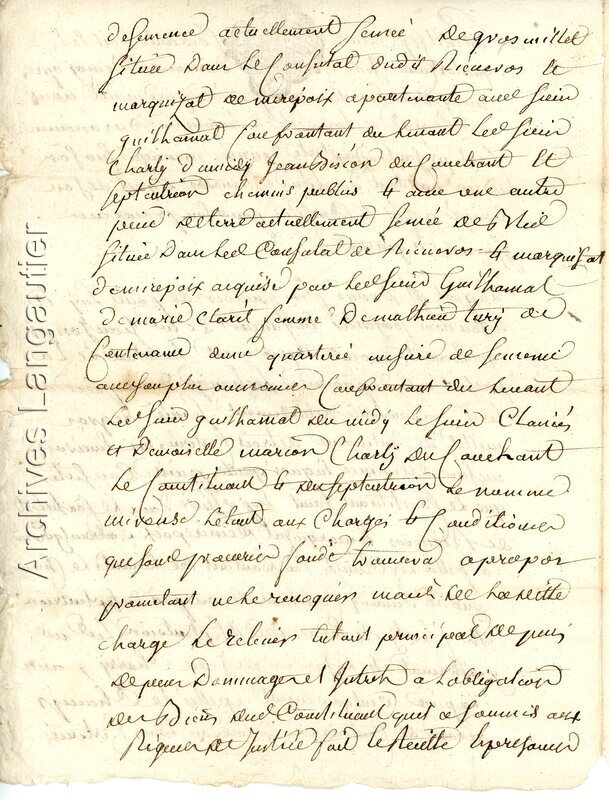 desemence actuellement semée de gros millet
située dans le Consulat dudit Rieucros et
marquisat de mirepoix apartenante audt sieur
guilhamat Confrontant du levant ledt sieur
Charly du midy Jean du Couchant et
septentrion chemins publics & avec une autre
piece de terre actuellement semée de
située dans ledt Consulat de Rieucros & marquisat
de mirepoix acquise par ledt sieur Guilhamat
de marie Clarit femme de mathieu de
Contenance d'une quarterée mesure de semence
ou environ Confrontant du levant
ledt sieur guilhamat du midy le sieur
et Demoiselle marion Charly du Couchant
le Constituant & du septentrion le nommé
le tout aux Charges & Conditions
que sond procureur fondé trouvera a propos
prometant ne le revoquer mais de ladite
charge le relever tant principal depens
Dommages et Interets a lobligation
des Biens dud Constituant quil a soumis aux
Rigueurs de Justice fait & recitté En presence
Archives Langautier